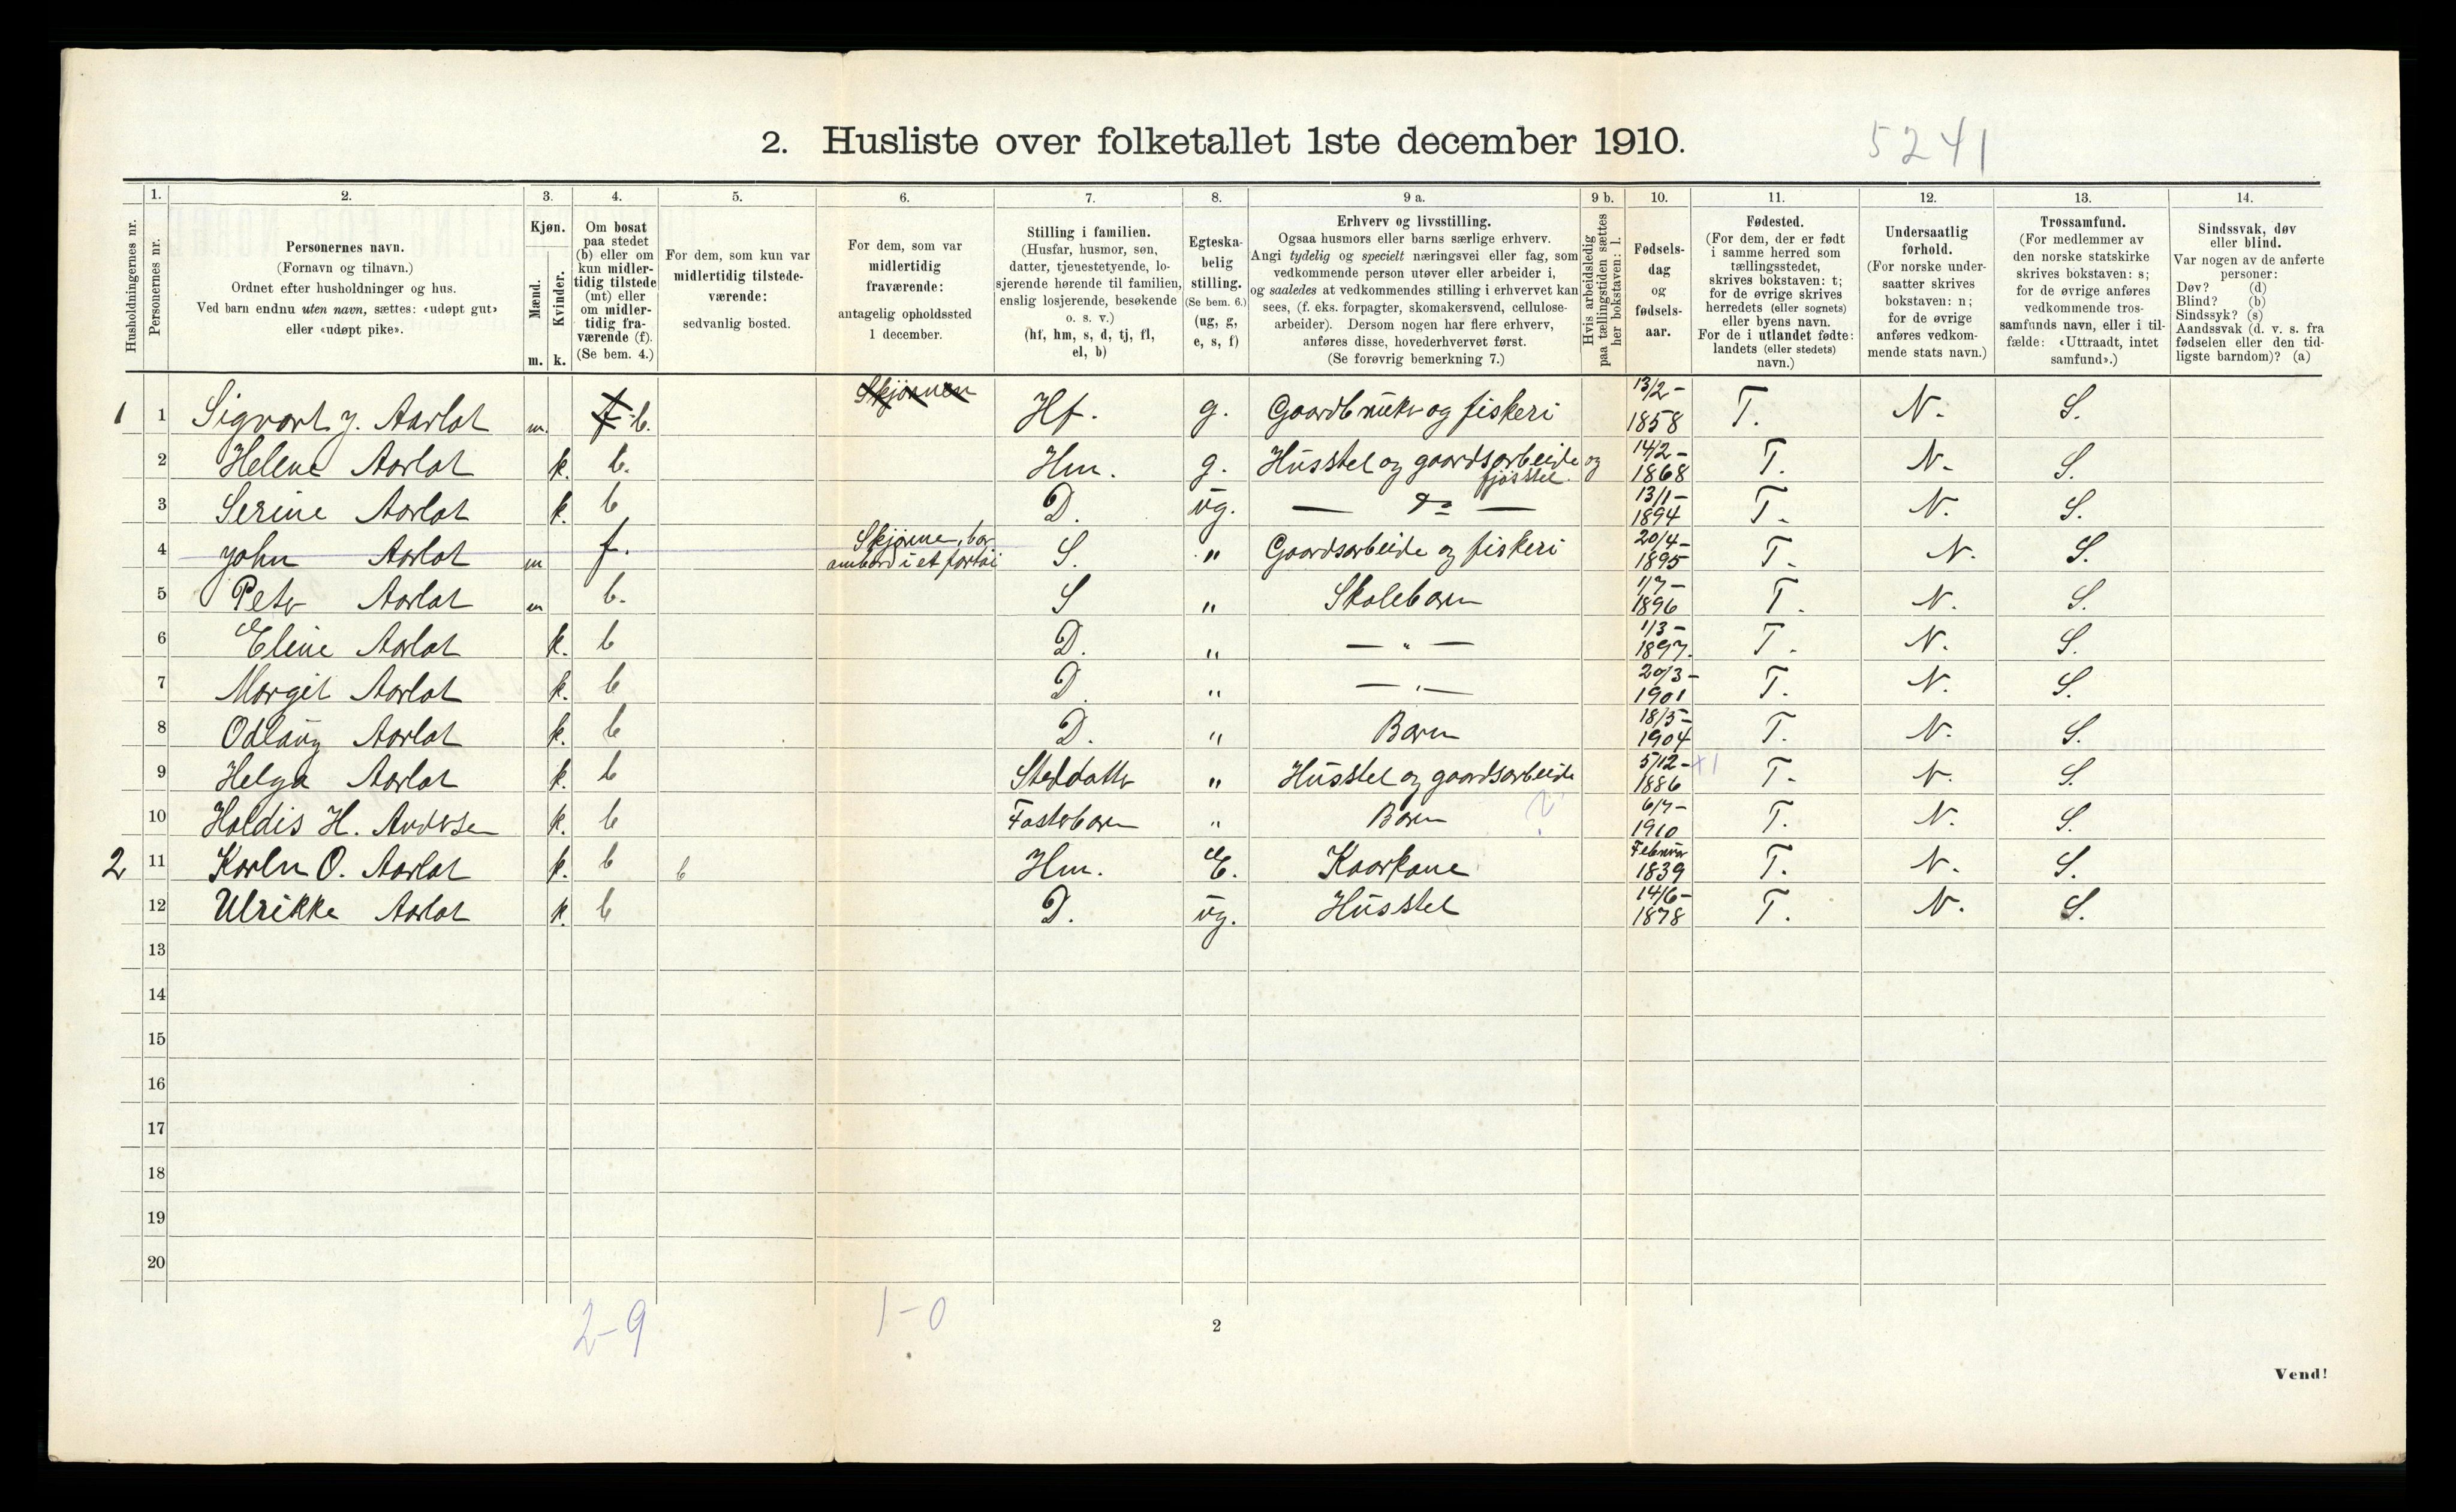 2. Husliste over folketallet 1ste december 1910.
5241
Husholdningernes nr.
1.
Personernes nr.
2.
Personernes navn.
(Fornavn og tilnavn.)
Ordnet efter husholdninger og hus.
Ved barn endnu uten navn, sættes: «udøpt gut»
eller «udøpt pike».
3.
Kjøn.
Mænd.
Kvinder.
m. k.
4.
Om bosat
paa stedet
(b) eller om
kun midler-
tidig tilstede
(mt) eller
om midler-
tidig fra-
værende (f).
(Se bem. 4.)
5.
For dem, som kun var
midlertidig tilstede-
værende:
sedvanlig bosted.
6.
For dem, som var
midlertidig
fraværende:
antagelig opholdssted
1 december.
7.
Stilling i familien.
(Husfar, husmor, søn,
datter, tjenestetyende, lo-
sjerende hørende til familien,
enslig losjerende, besøkende
o. s. v.)
(hf, hm, s, d, tj, fl,
el, b)
8.
Egteska-
belig
stilling.
(Se bem. 6.)
(ug, g,
e, s, f)
9 a.
Erhverv og livsstilling.
Ogsaa husmors eller barns særlige erhverv.
Angi tydelig og specielt næringsvei eller fag, som
vedkommende person utøver eller arbeider i,
og saaledes at vedkommendes stilling i erhvervet kan
sees, (f. eks. forpagter, skomakersvend, cellulose-
arbeider). Dersom nogen har flere erhverv,
anføres disse, hovederhvervet først.
(Se forøvrig bemerkning 7.)
9 b.
Hvis arbeidsledig
paa tællingstiden sættes
her bokstaven: l.
10.
Fødsels-
dag
og
fødsels-
aar.
11.
Fødested.
(For dem, der er født
i samme herred som
tællingsstedet,
skrives bokstaven: t;
for de øvrige skrives
herredets (eller sognets)
eller byens navn.
For de i utlandet fødte:
landets (eller stedets)
navn.)
12.
Undersaatlig
forhold.
(For norske under-
saatter skrives
bokstaven: n;
for de øvrige
anføres vedkom-
mende stats navn.)
13.
Trossamfund.
(For medlemmer av
den norske statskirke
skrives bokstaven: s;
for de øvrige anføres
vedkommende tros-
samfunds navn, eller i til-
fælde: «Uttraadt, intet
samfund».)
14.
Sindssvak, døv
eller blind.
Var nogen av de anførte
personer:
Døv? (d)
Blind? (b)
Sindssyk? (s)
Aandssvak (d. v. s. fra
fødselen eller den tid-
ligste barndom)? (a)
1 1 Sigvart J. Aarlot m. f b. Skjønnen Hf. g. Gaardbruker og fiskeri 13/2- 1858 T. N. S.
2 Helene Aarlot k. b. Hm. g. Husstel og gaardsarbeide og fjøsstel. 14/2- 1868 T. N. S.
3 Serine Aarlot k. b D. ug. — do — 13/1- 1894 T. N. S.
4 John Aarlot m f. ombord i et fartøi S. " Gaardsarbeide og fiskeri 20/4- 1895 T. N. S.
5 Peter Aarlot m b. S " Skolebarn 1/7- 1896 T. N. S.
6 Eline Aarlot k. b D. " — " — 1/3- 1897. T. N. S.
7 Margit Aarlot k. b D " — " — 20/3- 1901 T. N. S.
8 Odlaug Aarlot k. b D. " Barn 18/5- 1904 T. N. S.
9 Helga Aarlot k. b Steddatter " Husstel og gaardsarbeide 5/12- 1886 T. N. S.
10 Haldis H. Andersen k. b Fosterbarn " Barn ? 6/7- 1910 T. N. S.
2 11 Karen O. Aarlot k. b b Hm. E. Kaarkone Februar 1839 T. N. S.
12 Ulrikke Aarlot k. b D. ug. Husstel 14/6- 1878 T. N. S.
13
14
15
16
17
18
19
20
2-9
1-0
2
Vend!